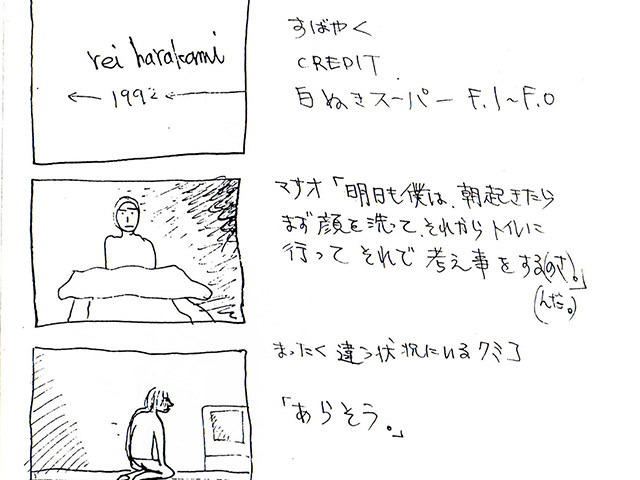 rei harakami
1992
すばやく
CREDIT
白ぬきスーパー F.I~F.O
マサオ「明日も僕は、朝起きたら
まず顔を洗って、それからトイレに
行って それで 考え事をする(のさ)。」
(んだ。)
まったく違う状況にいるクミコ
「あらそう。」